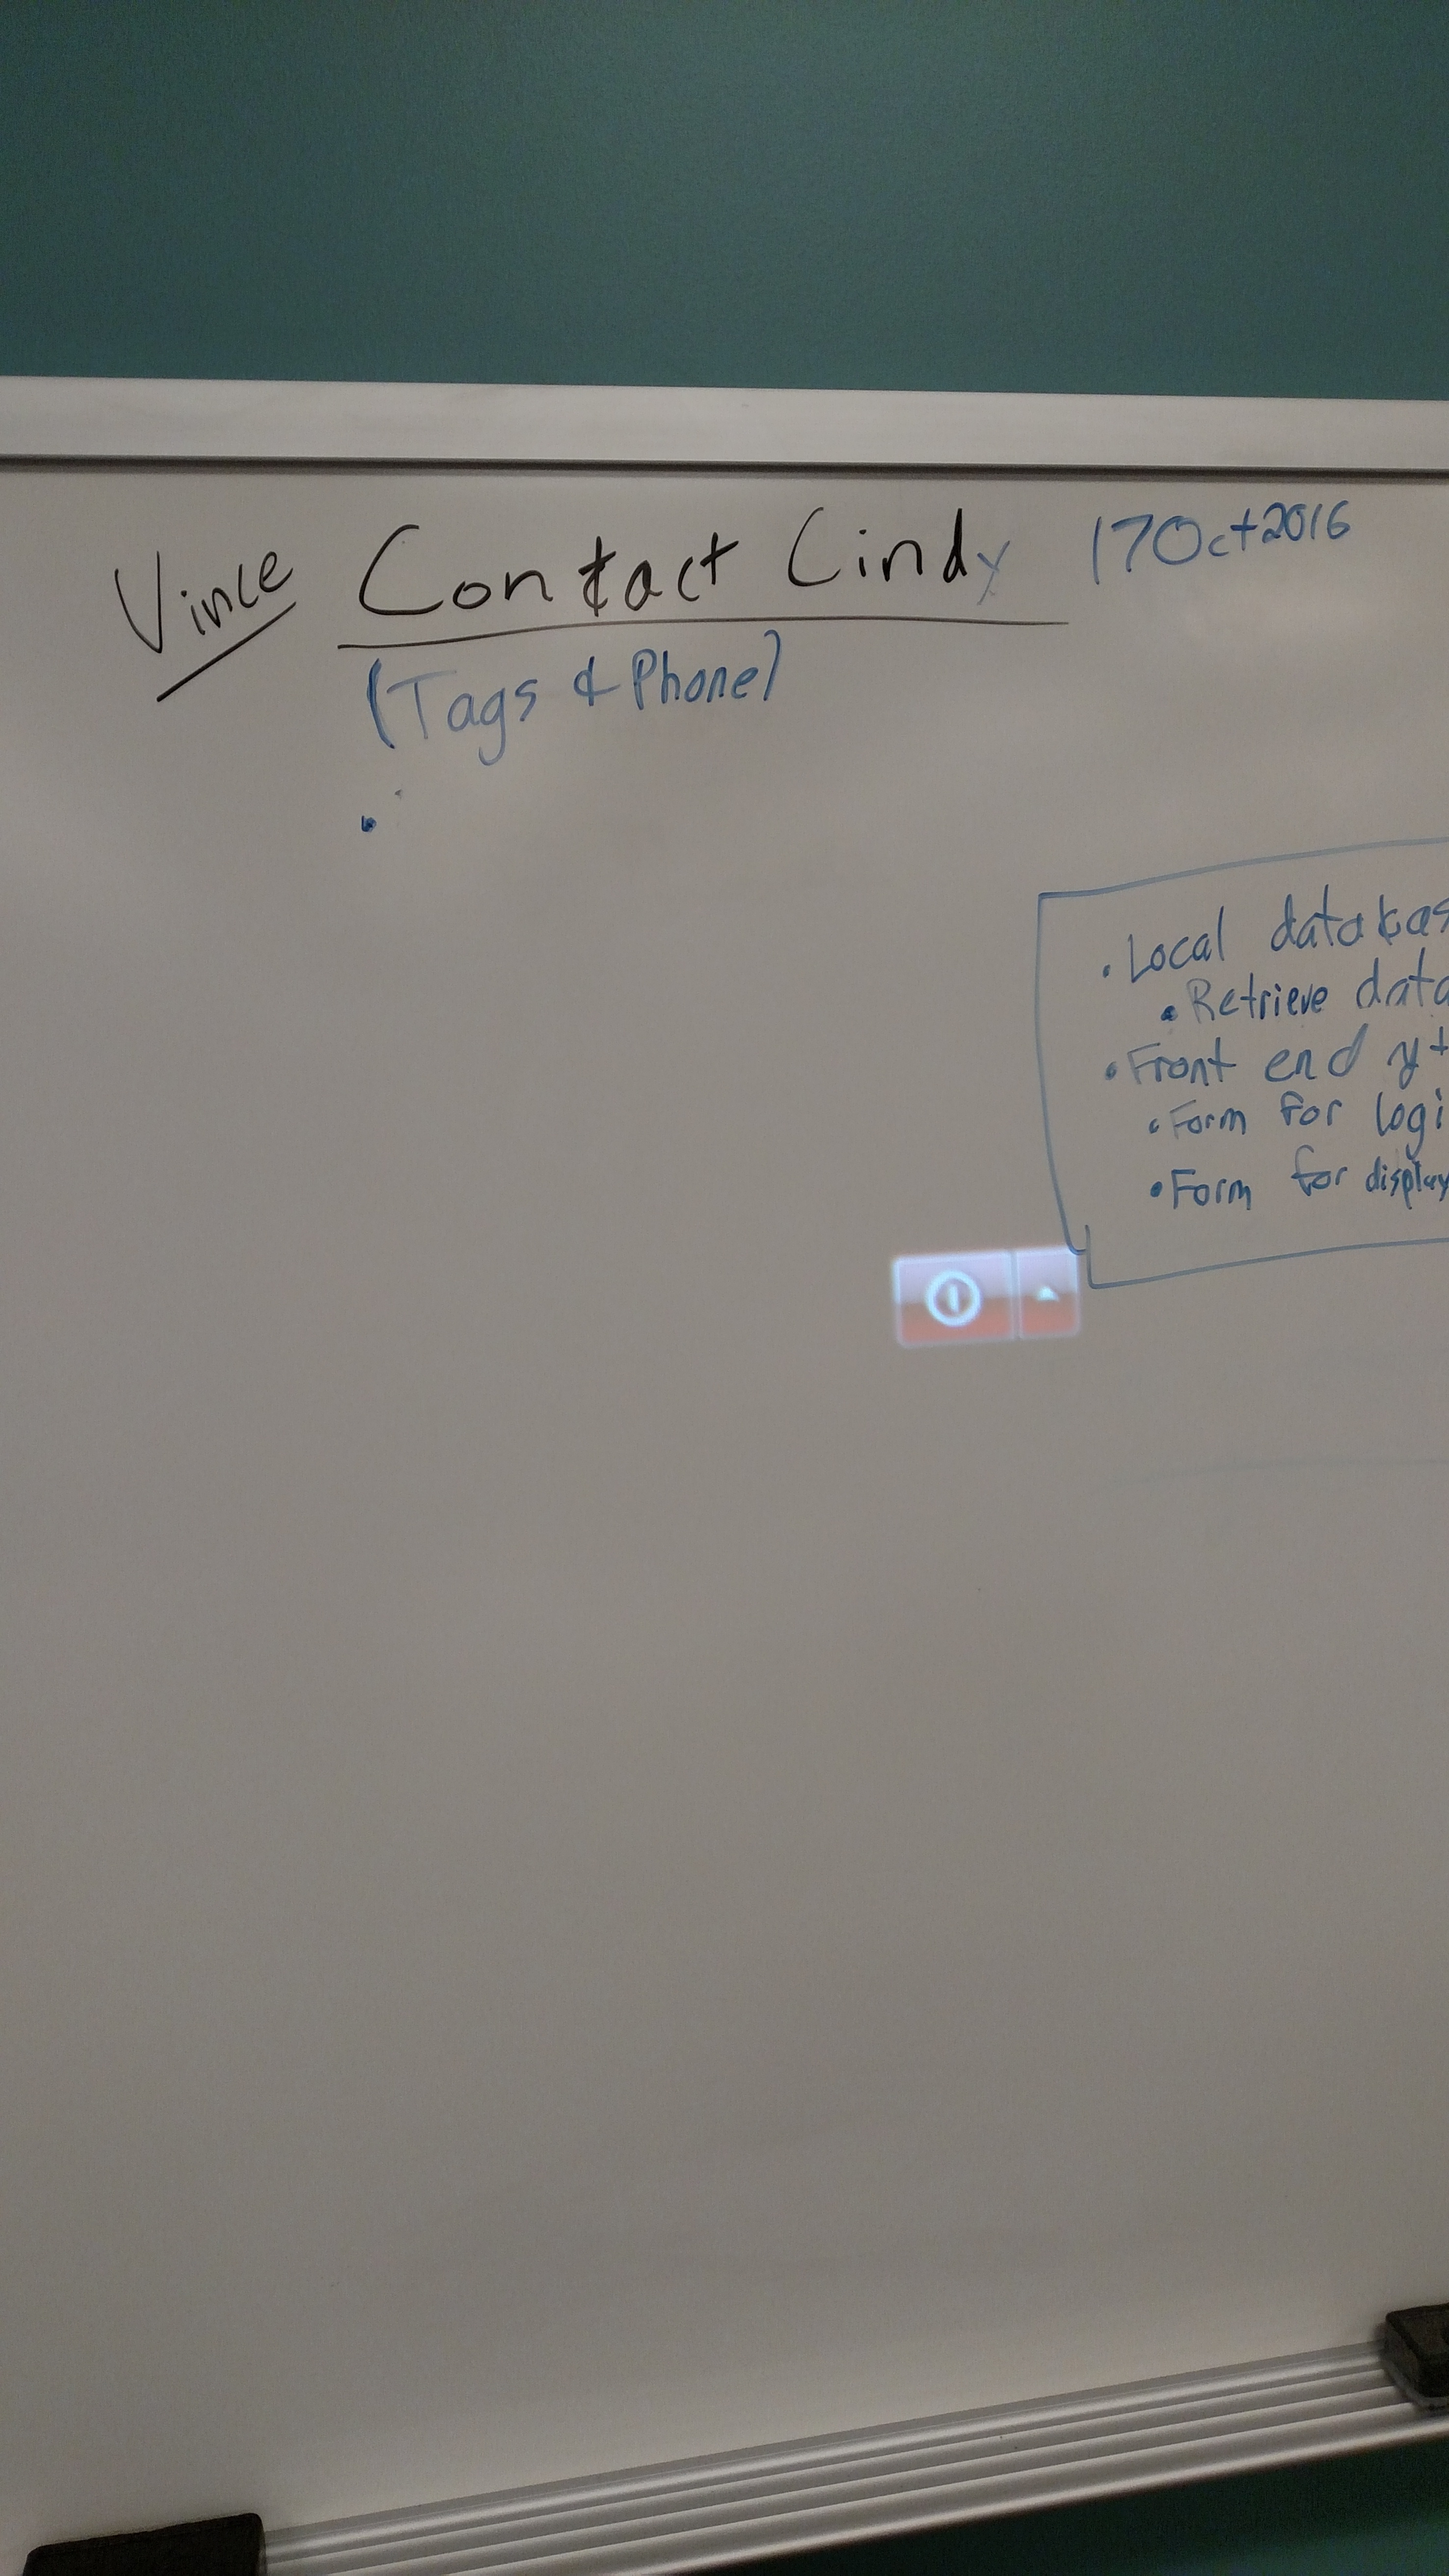 Vince Contact Cindy 17Oct2016
(Tags & Phone)
•
• Local databas
• Retrieve data
• Front end
• Form for logi
• Form for display